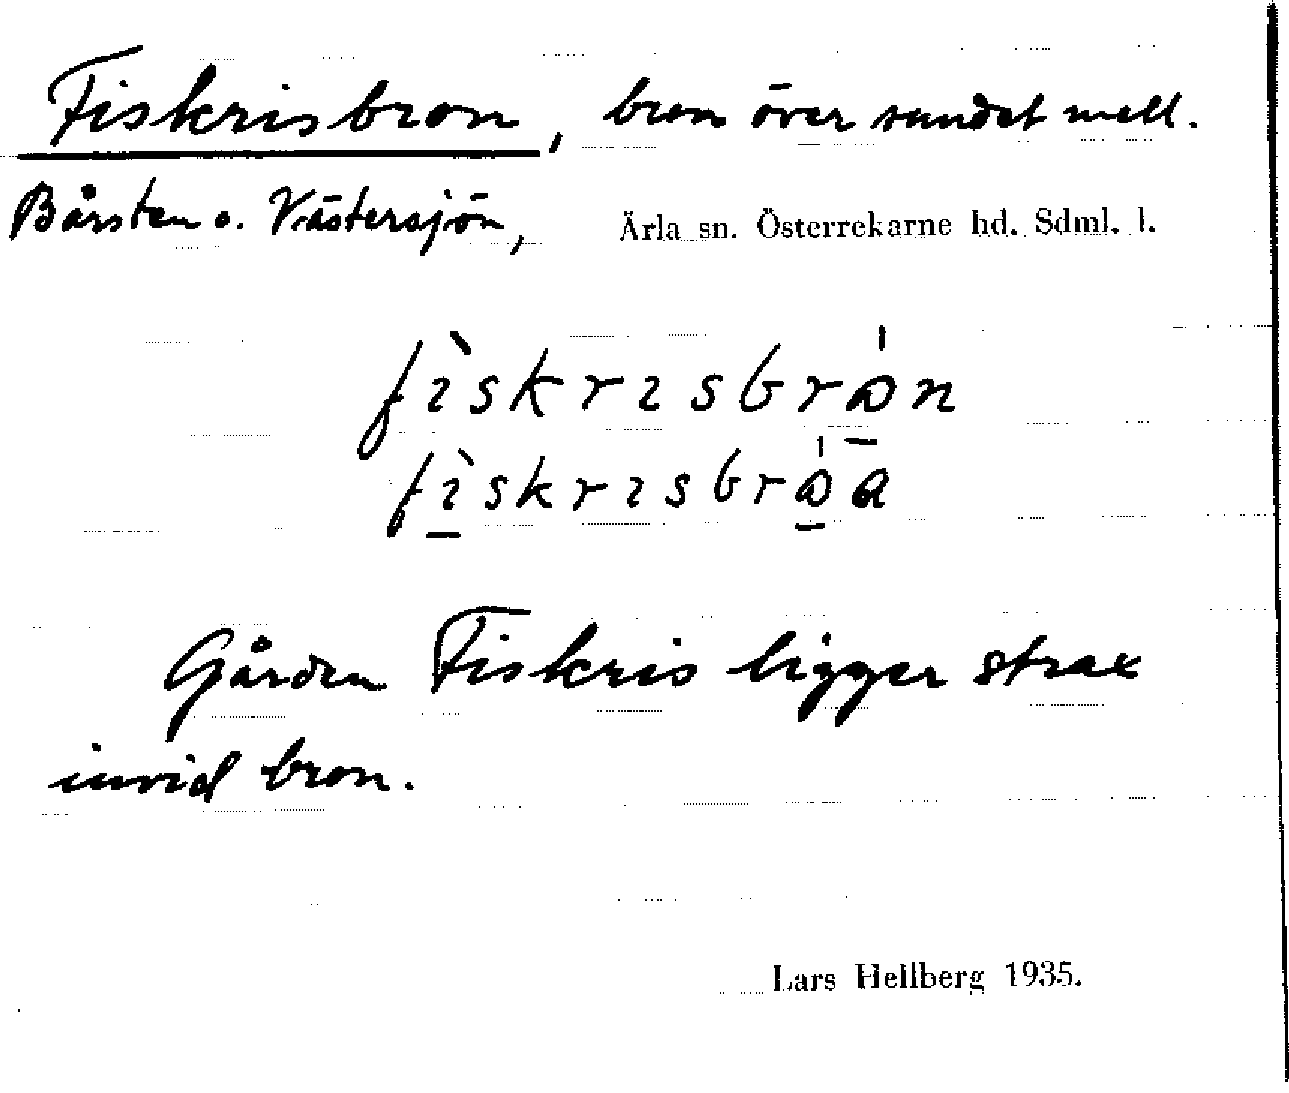 Fiskrisbron, bron över sundet mell.
Bårsten o. Västersjön, Ärla sn. Österrekarne hd. Sdml. l.
fìskrısbrω̇n
fìskrısbrω̇a
Gården Fiskris ligger strax
invid bron.
Lars Hellberg 1935.